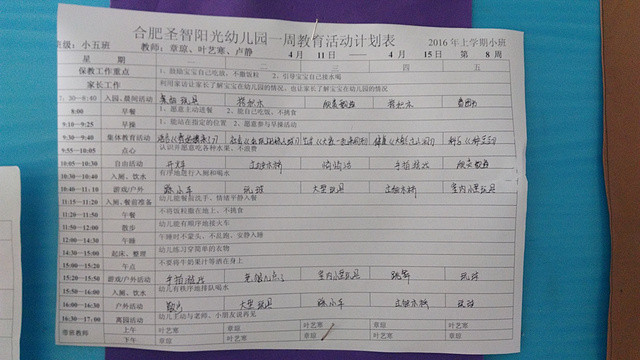 合肥圣智阳光幼儿园一周教育活动计划表
班级：小五班 教师：章琼、叶艺寒、卢静 4月11日——4月15日 第8周 2016年上学期小班
星期 一 二 三 四 五
保教工作重点 1、鼓励宝宝自己吃饭，不撒饭粒 2、引导宝宝自己接水喝
家长工作 利用家访让家长了解宝宝在幼儿园的情况，也让家长了解宝宝在幼儿园的情况
7:30-8:40 入园、晨间活动 桌面玩具 搭积木 搭积木 看图书
8:00 早餐 1、愿意主动进餐 2、能自己吃饭，不挑食
9:10-9:25 早操 1、能站在指定的位置 2、愿意参与早操活动
9:30-9:40 集体教育活动
9:55-10:05 点心 认识并愿意吃各种水果，不浪费
10:05-10:30 自由活动 开火车 过独木桥 手指游戏
10:30-10:40 入厕、饮水 有序地进行入厕和喝水
10:40-11:10 游戏/户外 骑小车 玩球 大型玩具 过独木桥 室内小型玩具
11:15-11:20 入厕、餐前准备 幼儿能餐前洗手、情绪平静入餐
11:20-11:50 午餐 不将饭粒撒在地上，不挑食
11:50-12:00 散步 幼儿能有顺序地接火车
12:00-14:30 午睡 午睡时不蒙头、不乱跑、安静入睡
14:30-15:00 起床、整理 幼儿练习穿简单的衣物
15:00-15:20 午点 不要将牛奶果汁等洒在身上
15:20-15:50 游戏/户外活动 手指游戏 室内小型玩具 跳舞 玩球
15:50-16:00 入厕、饮水 幼儿有秩序地排队喝水
16:00-16:30 户外活动 散步 大型玩具 骑小车 过独木桥 玩球
16:30-17:00 离园活动 幼儿主动与老师、小朋友说再见
带班教师 上午 叶艺寒 章琼 叶艺寒 章琼 叶艺寒
下午 章琼 叶艺寒 章琼 叶艺寒 章琼